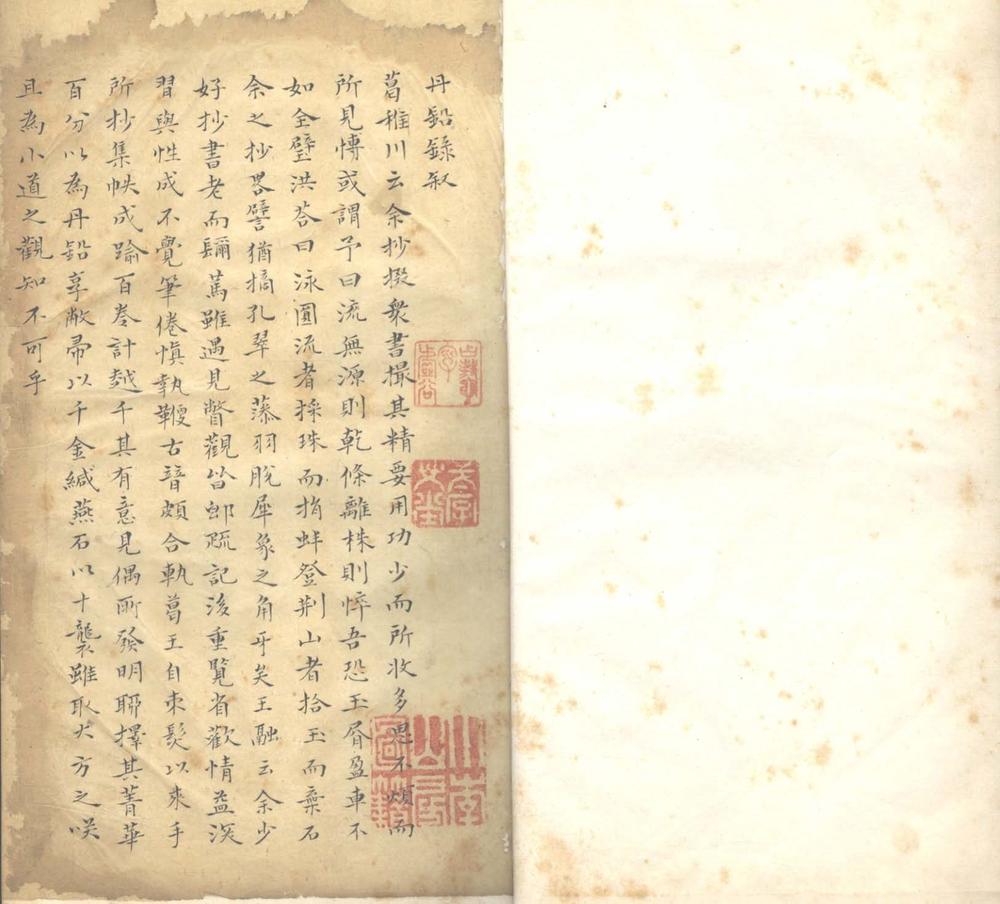 丹鉛錄敘
葛稚川云余抄掇衆書撮其精要用功少而所收多思不煩而
所見博或謂予曰流無源則乾條離株則悴吾恐玉屑盈車不
如全璧洪荅曰泳圓流者採珠而捐蚌登荆山者拾玉而棄石
余之抄畧譬猶摘孔翠之藻羽脫犀象之角牙矣王融云余少
好抄書老而彌篤雖遇見瞥觀皆即疏記後重覽省歡情益深
習與性成不覺筆倦愼執鞭古音頗合軌葛王自束髮以來手
所抄集帙成踰百卷計越千其有意見偶所發明聊擇其菁華
百分以為丹鉛享敝帚以千金緘燕石以十襲雖取大方之咲
且為小道之觀知不可乎